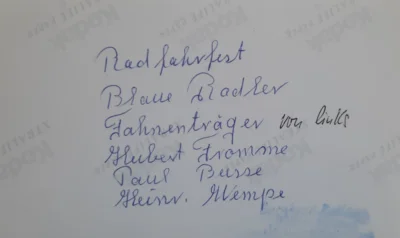 Radfahrfest
Blaue Radler
Fahnenträger von links
Hubert Fromme
Paul Busse
Heinr. Wempe